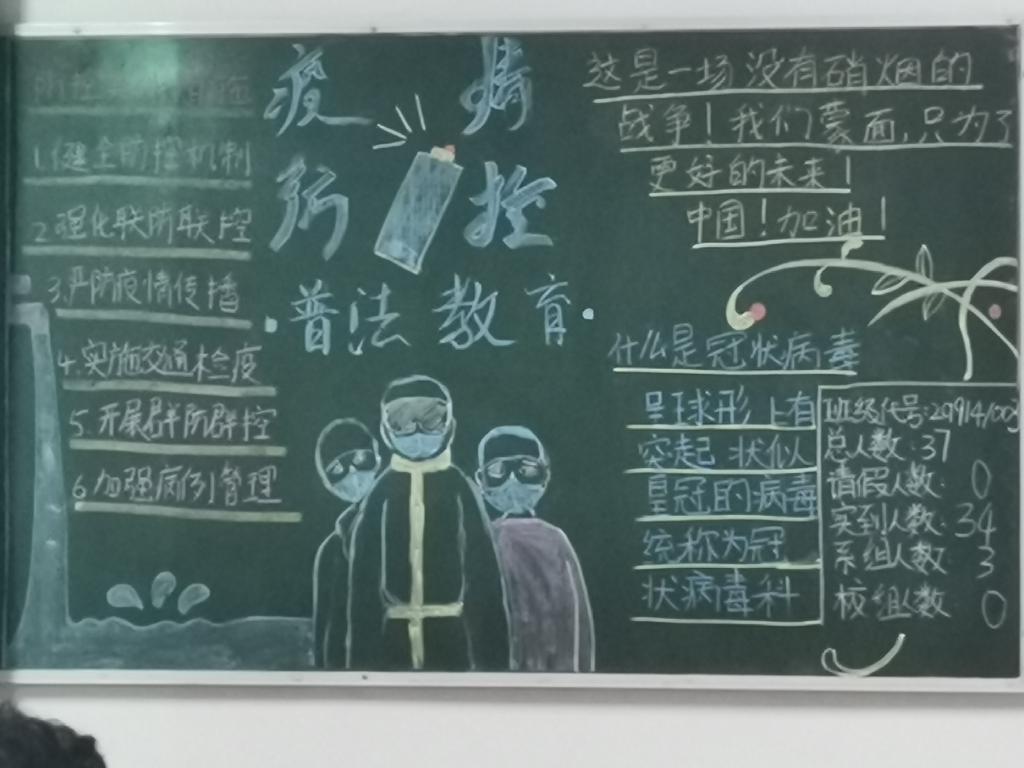 1.健全防控机制
2.强化联防联控
3.严防疫情传播
4.实施交通检疫
5.开展群防群控
6.加强病例管理
疫情
防控
普法教育
这是一场没有硝烟的
战争！我们蒙面,只为了
更好的未来！
中国！加油！
什么是冠状病毒
呈球形上有
突起 状似
皇冠的病毒
统称为冠
状病毒科
班级代号:
总人数:37
请假人数: 0
实到人数:34
系组人数: 3
校组人数: 0